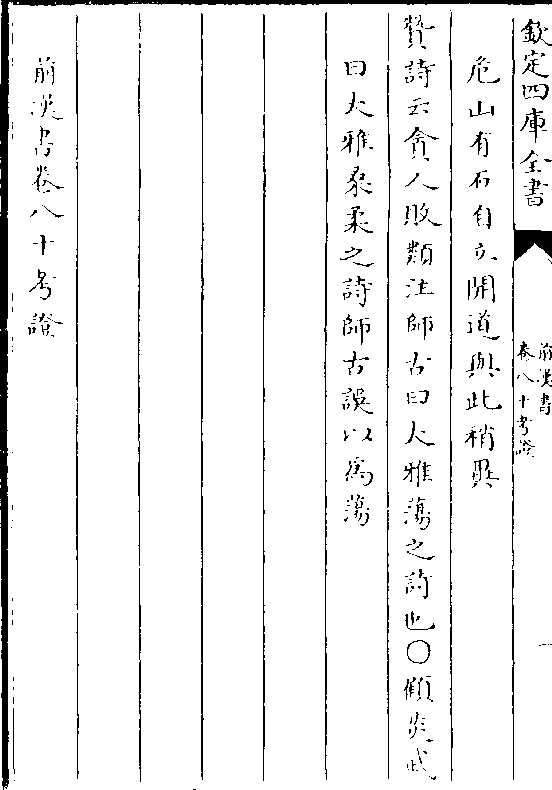 欽定四庫全書
前漢書
卷八十考證
危山有石自立開道與此稍異
贊詩云貪人敗類注師古曰大雅蕩之詩也〇顧炎武
曰大雅桑柔之詩師古誤以為蕩
前漢書卷八十考證